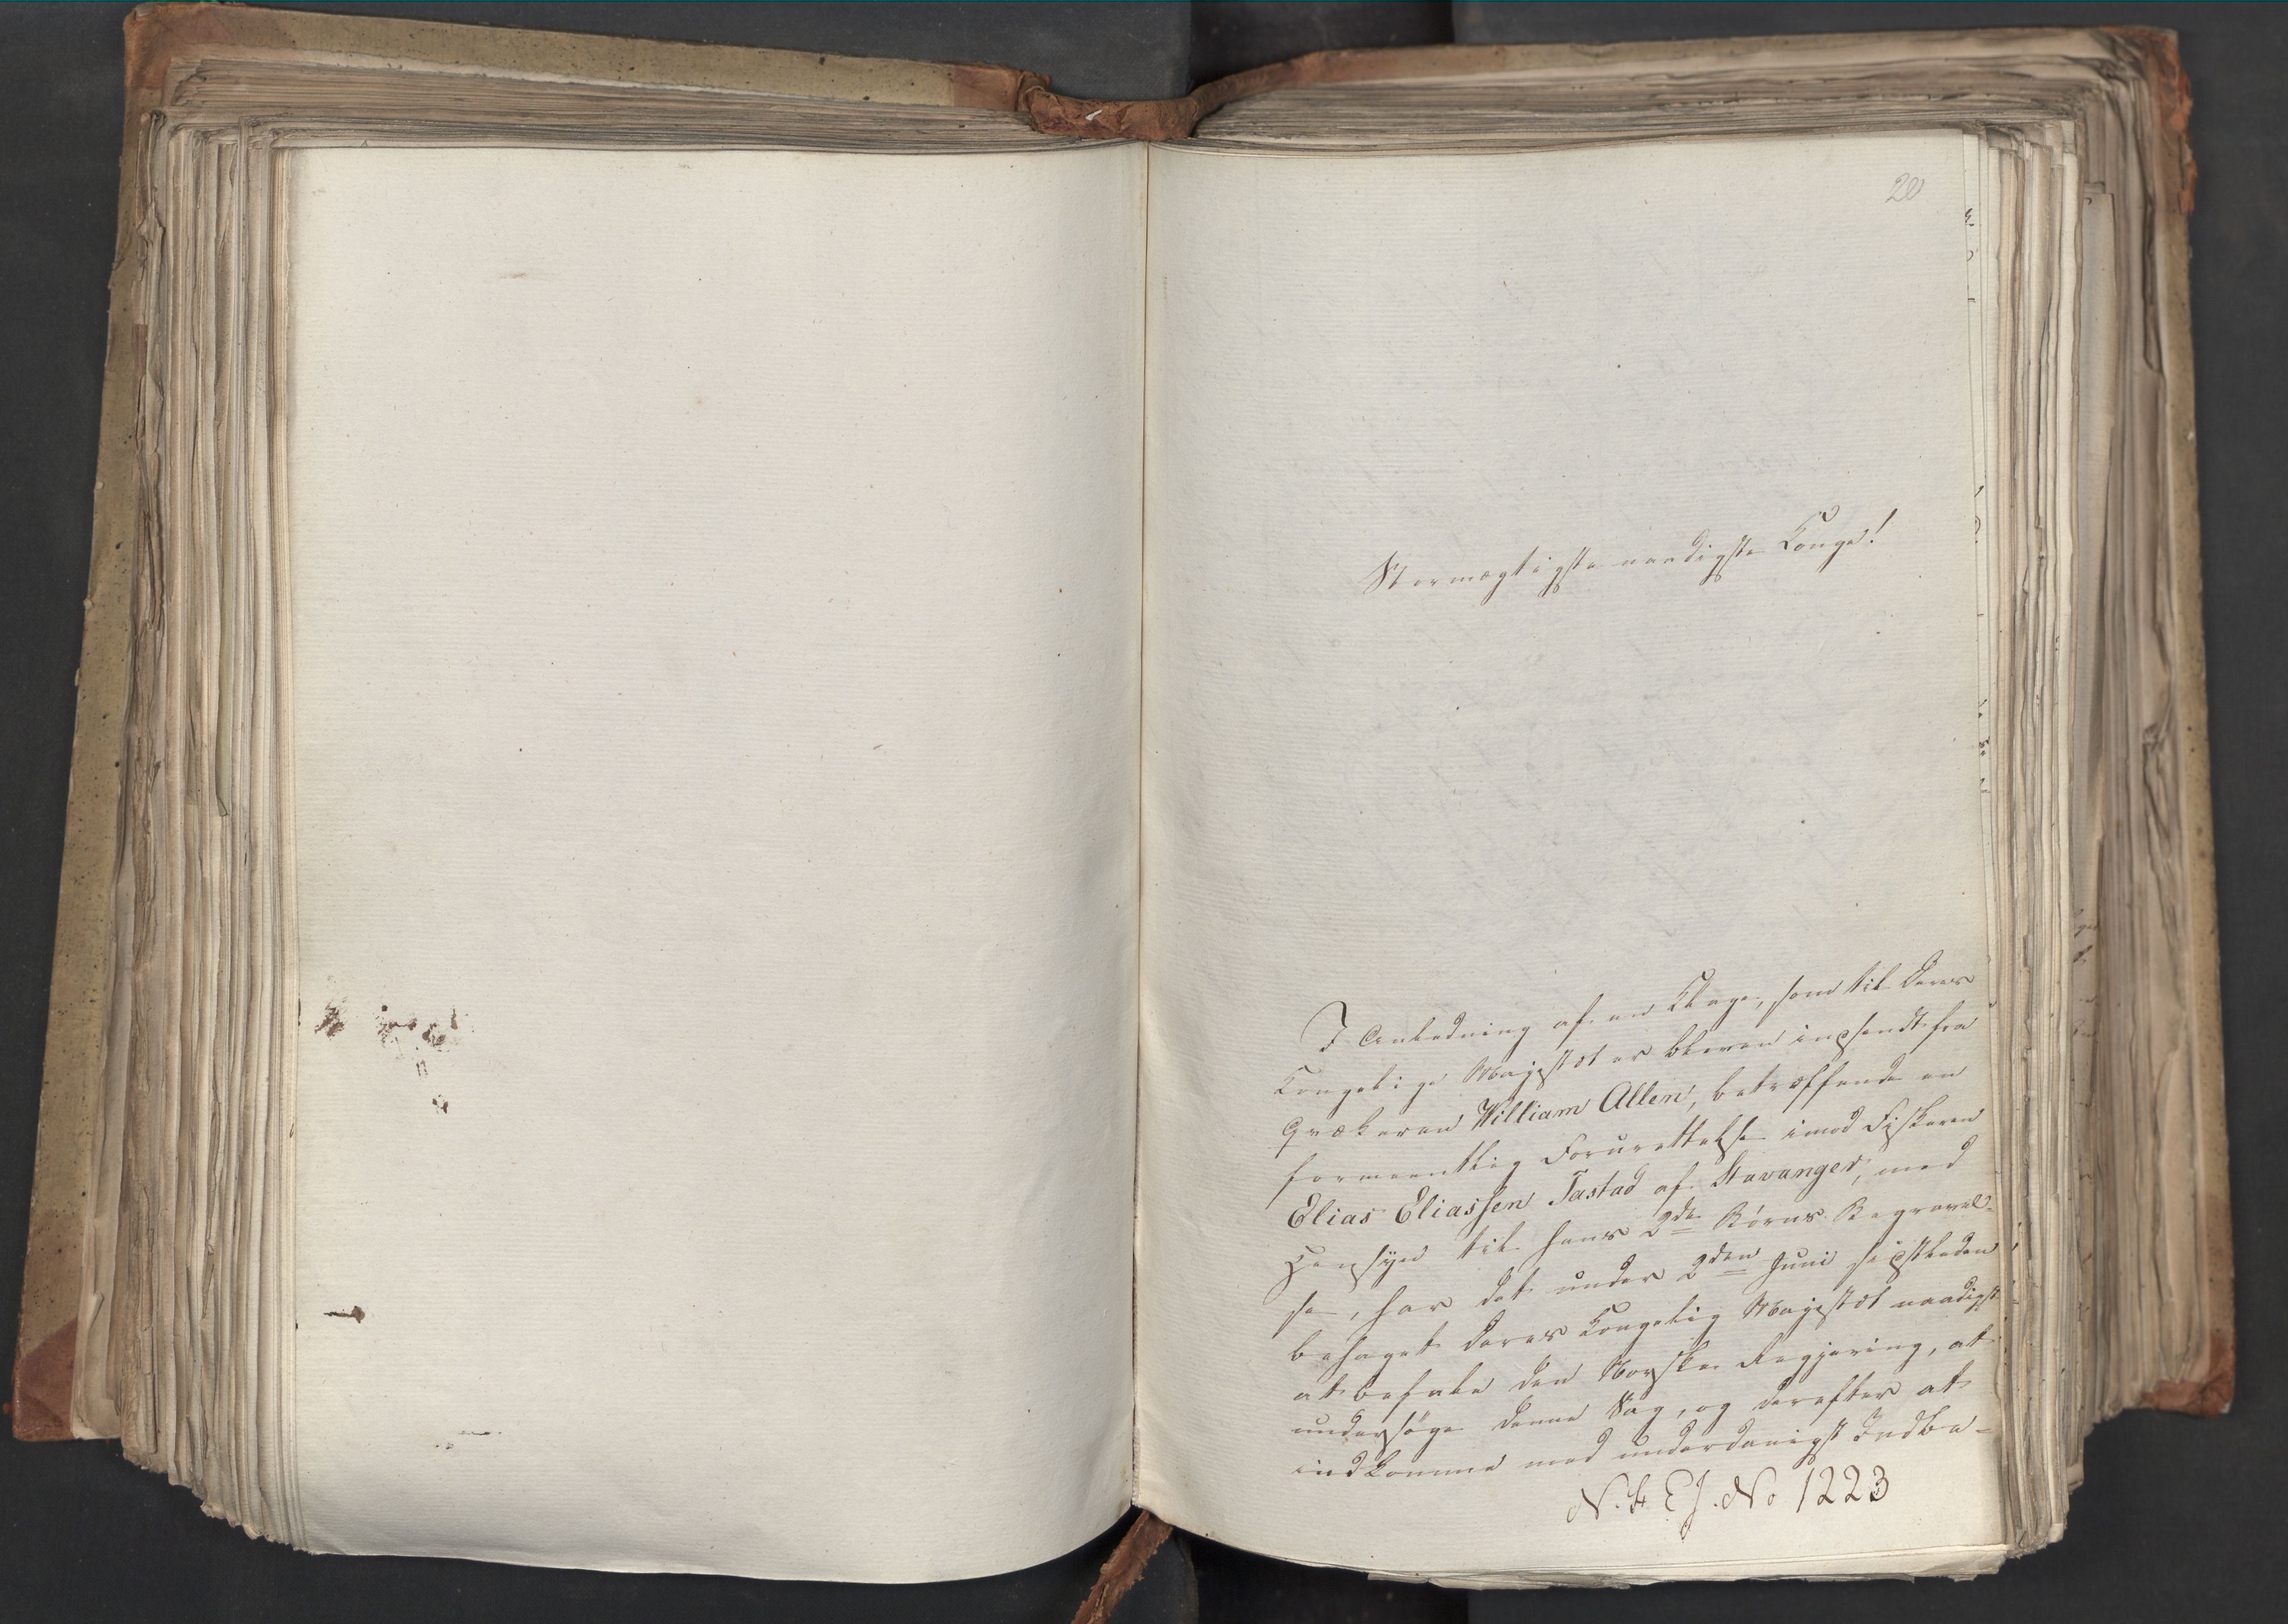 20
Stormægtigste naadigste Konge!
I Anledning af en Klage, som til Deres
Kongelige Majestæt er bleven indsendt fra
Qvækeren William Allen, betræffende en
formeentlig Forurettelse imod Fiskeren
Elias Eliassen Tastad af Stavanger, med
Hensyn til hans 2de Börns Begravel-
se, har det under 2den Juni sidstleden
behaget Deres Kongelig Majestæt naadigst
at befale den Norske Regjering, at
undersöge denne Sag, og derefter at
indkomme med underdanigst Indbe-
N. S. E J. No 1223